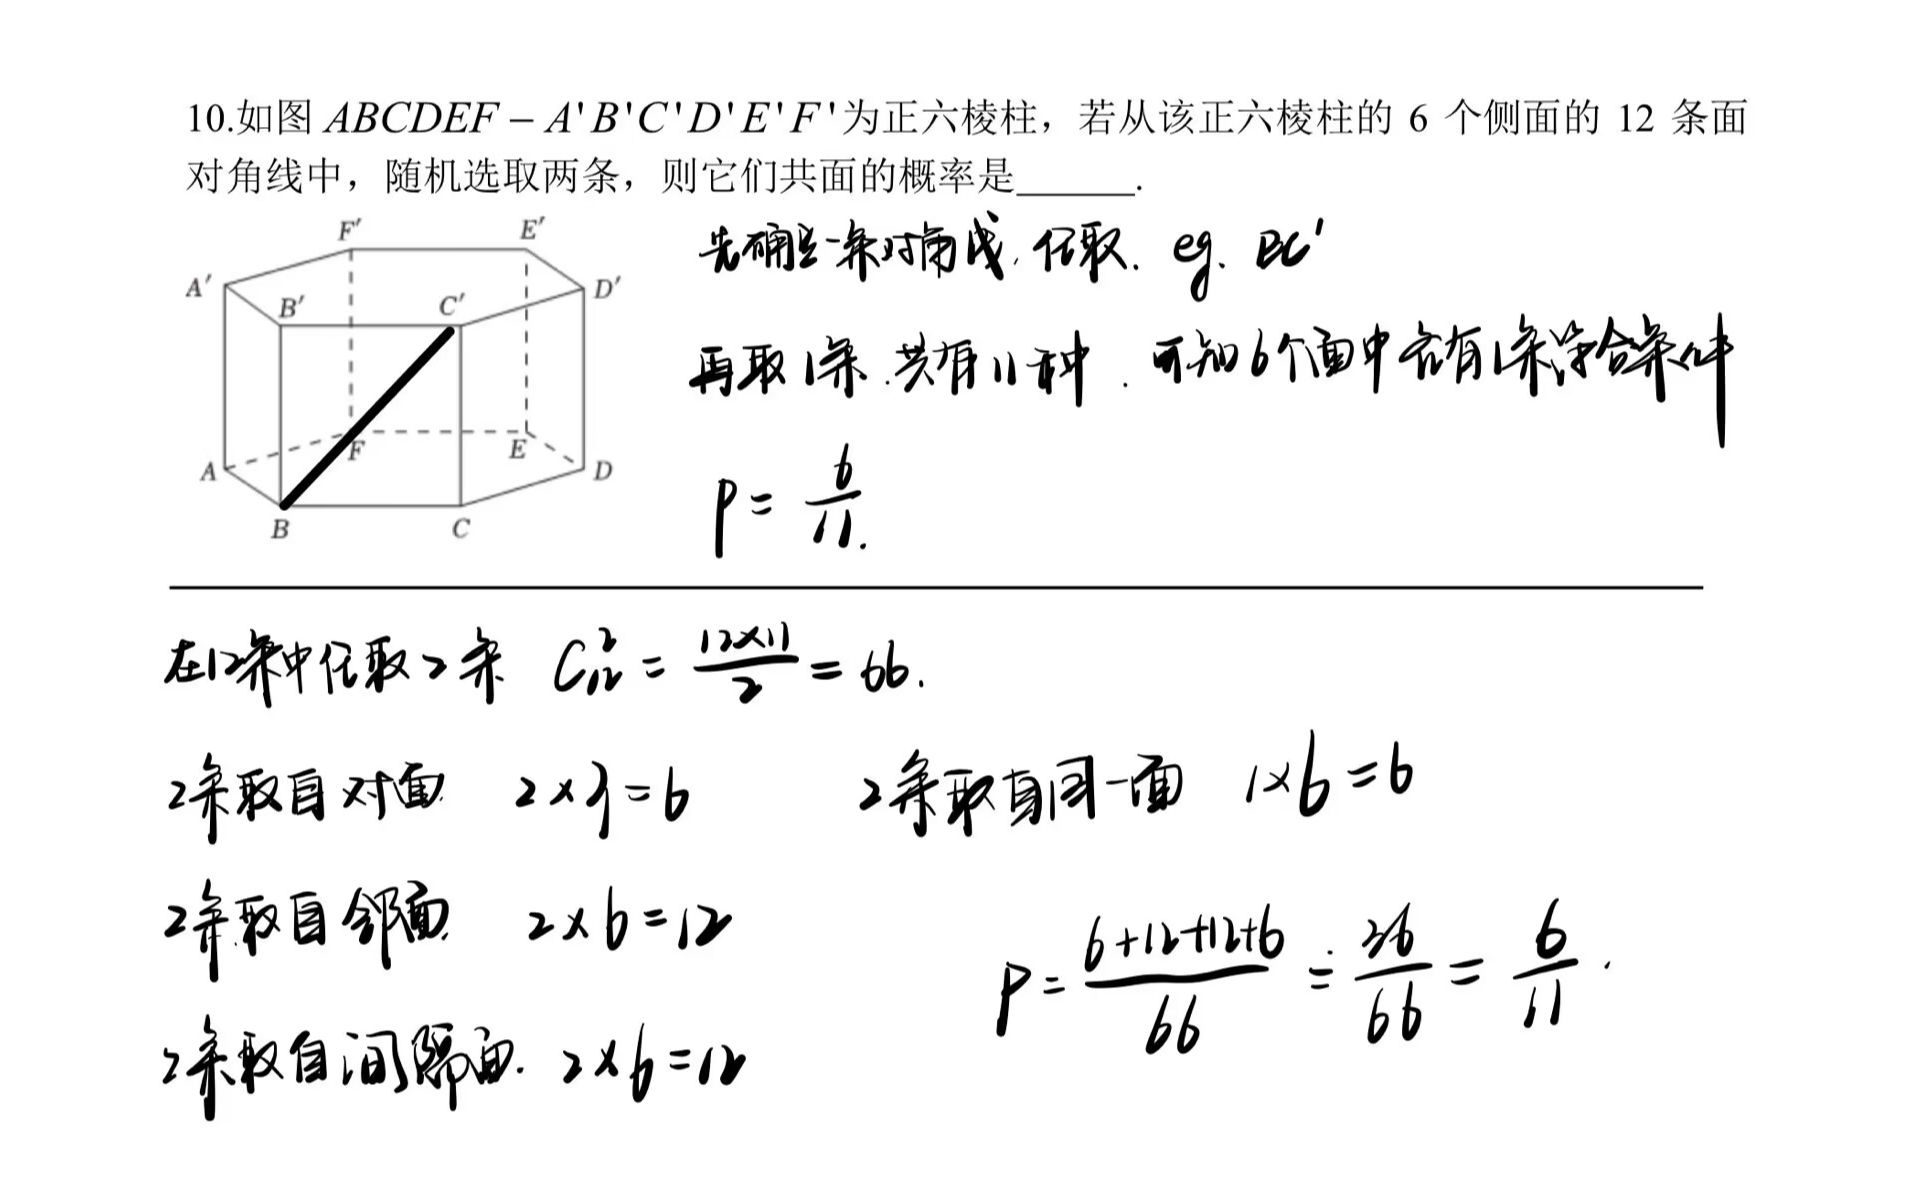 10.如图 ABCDEF – A'B'C'D'E'F'为正六棱柱，若从该正六棱柱的 6 个侧面的 12 条面
对角线中，随机选取两条，则它们共面的概率是______.
F' E'
A' B' C' D'
A F E D
B C
先确定一条对角线, 任取. eg. BC'
再取1条. 共有11种. 可知6个面中各有1条符合条件
P = 6/11.
在12条中任取2条 C₁₂² = 12×11/2 = 66.
2条取自对面 2×3=6 2条取自同一面 1×6=6
2条取自邻面. 2×6=12
P = 6+12+12+6/66 = 36/66 = 6/11.
2条取自间隔面. 2×6=12